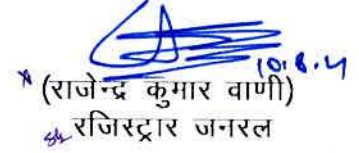 10.8.21
(राजेन्द्र कुमार वाणी)
रजिस्ट्रार जनरल